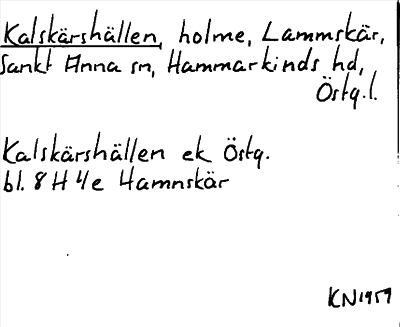 Kalskärshällen, holme, Lammskär,
Sankt Anna sn, Hammarkinds hd,
Östg.l.
Kalskärshällen ek Östg.
bl. 8 H 4e Hamnskär
KN 1959